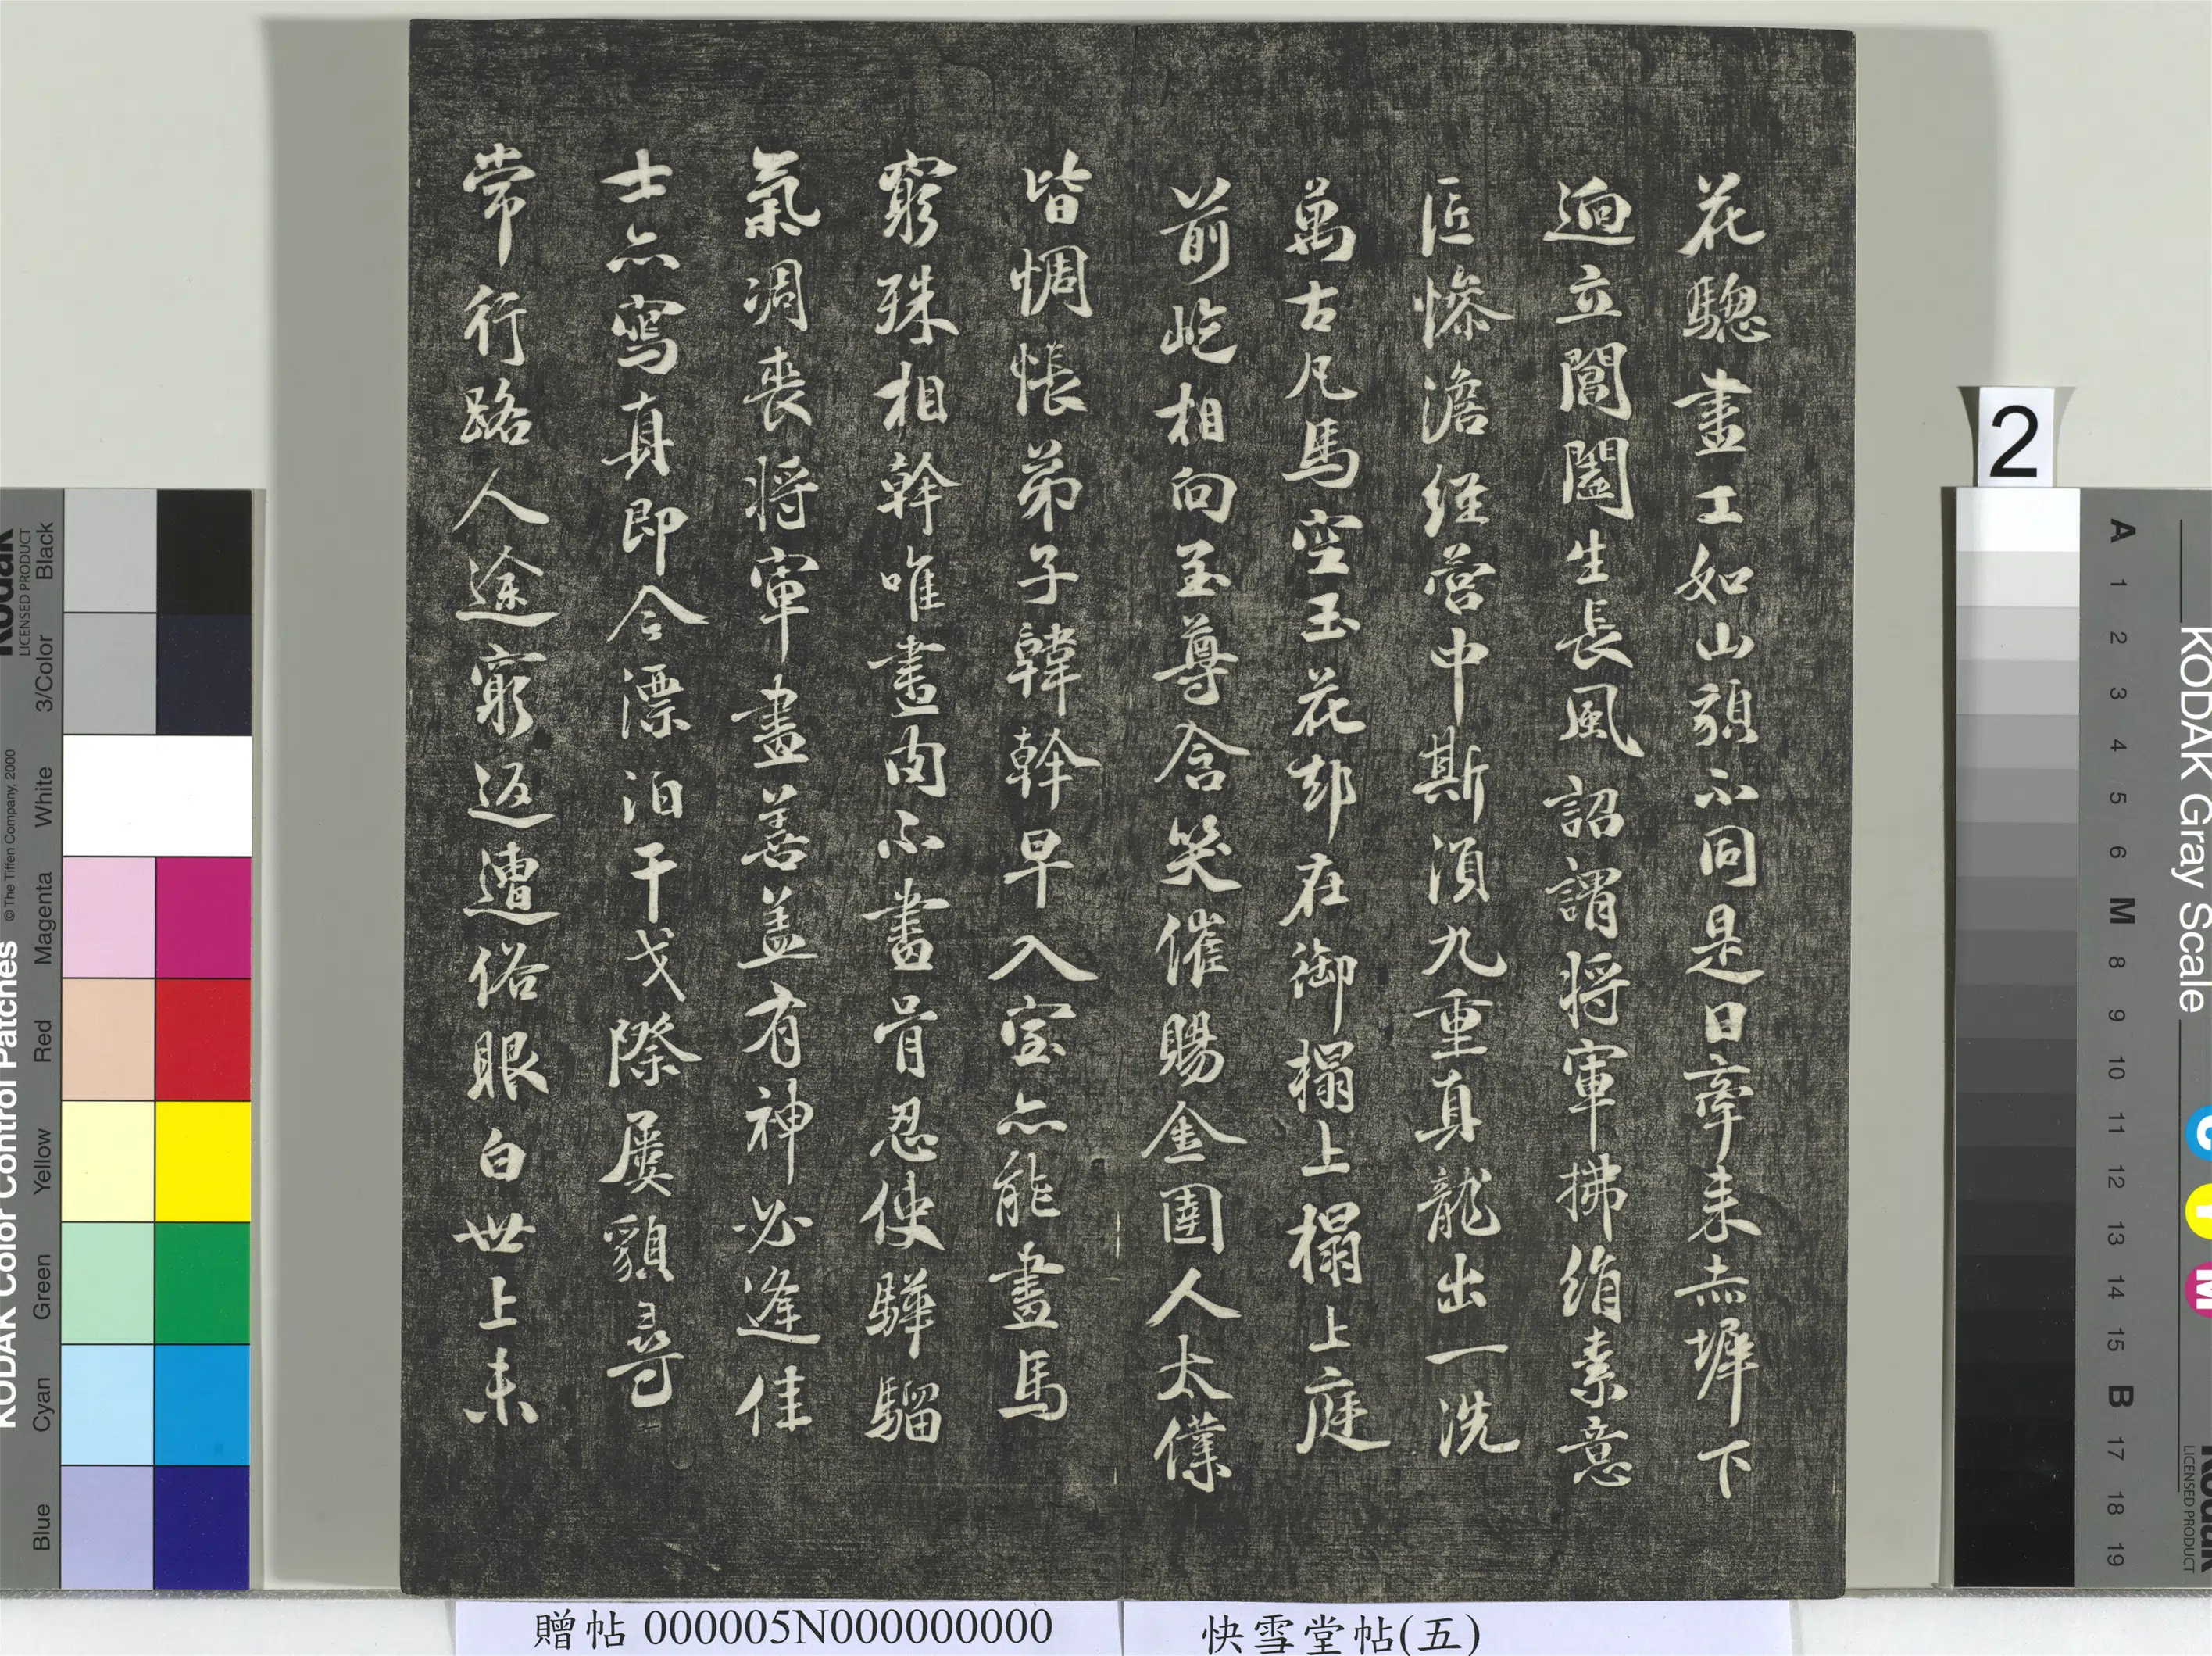 花驄畫工如山貌不同是日牽来赤墀下
逈立閶闔生長風詔謂將軍拂絹素意
匠慘澹經營中斯湏九重真龍出一洗
萬古凡馬空玉花却在御榻上榻上庭
前屹相向至尊含笑催賜金圉人太僕
皆惆悵弟子韓幹早入室亦能畫馬
窮殊相幹唯畫肉不畫骨忍使驊騮
氣凋喪將軍畫善盖有神必逢佳
士亦寫真即今漂泊干戈際屢貌尋
常行路人途窮返遭俗眼白世上未
贈帖 000005N000000000
快雪堂帖(五)
2
KODAK Color Control Patches
© The Tiffen Company, 2000
Kodak
LICENSED PRODUCT
Black
3/Color
White
Magenta
Red
Yellow
Green
Cyan
Blue
KODAK Gray Scale
A 1 2 3 4 5 6 M 8 9 10 11 12 13 14 15 B 17 18 19
C Y M
Kodak
LICENSED PRODUCT